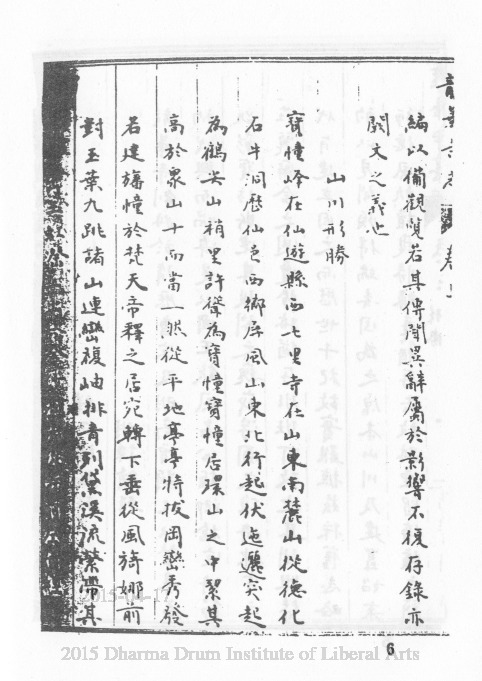 編以備觀覽若其傳聞異辭屬於影響不復存錄亦
闕文之義也
山川形勝
寶幢峰在仙遊縣西七里寺在山東南麓山從德化
石牛洞歷仙邑西鄉屏風山東北行起伏迤邐突起
為鶴尖山稍里許聳為寶幢寶幢居環山之中絜其
高於衆山十而當一然從平地亭亭特拔岡巒秀發
若建旛幢於梵天帝釋之居宛轉下垂從風旖娜前
對玉葉九跳諸山連巒複岫排青列黛溪流縈帶其
2015-04-17
6
2015 Dharma Drum Institute of Liberal Arts